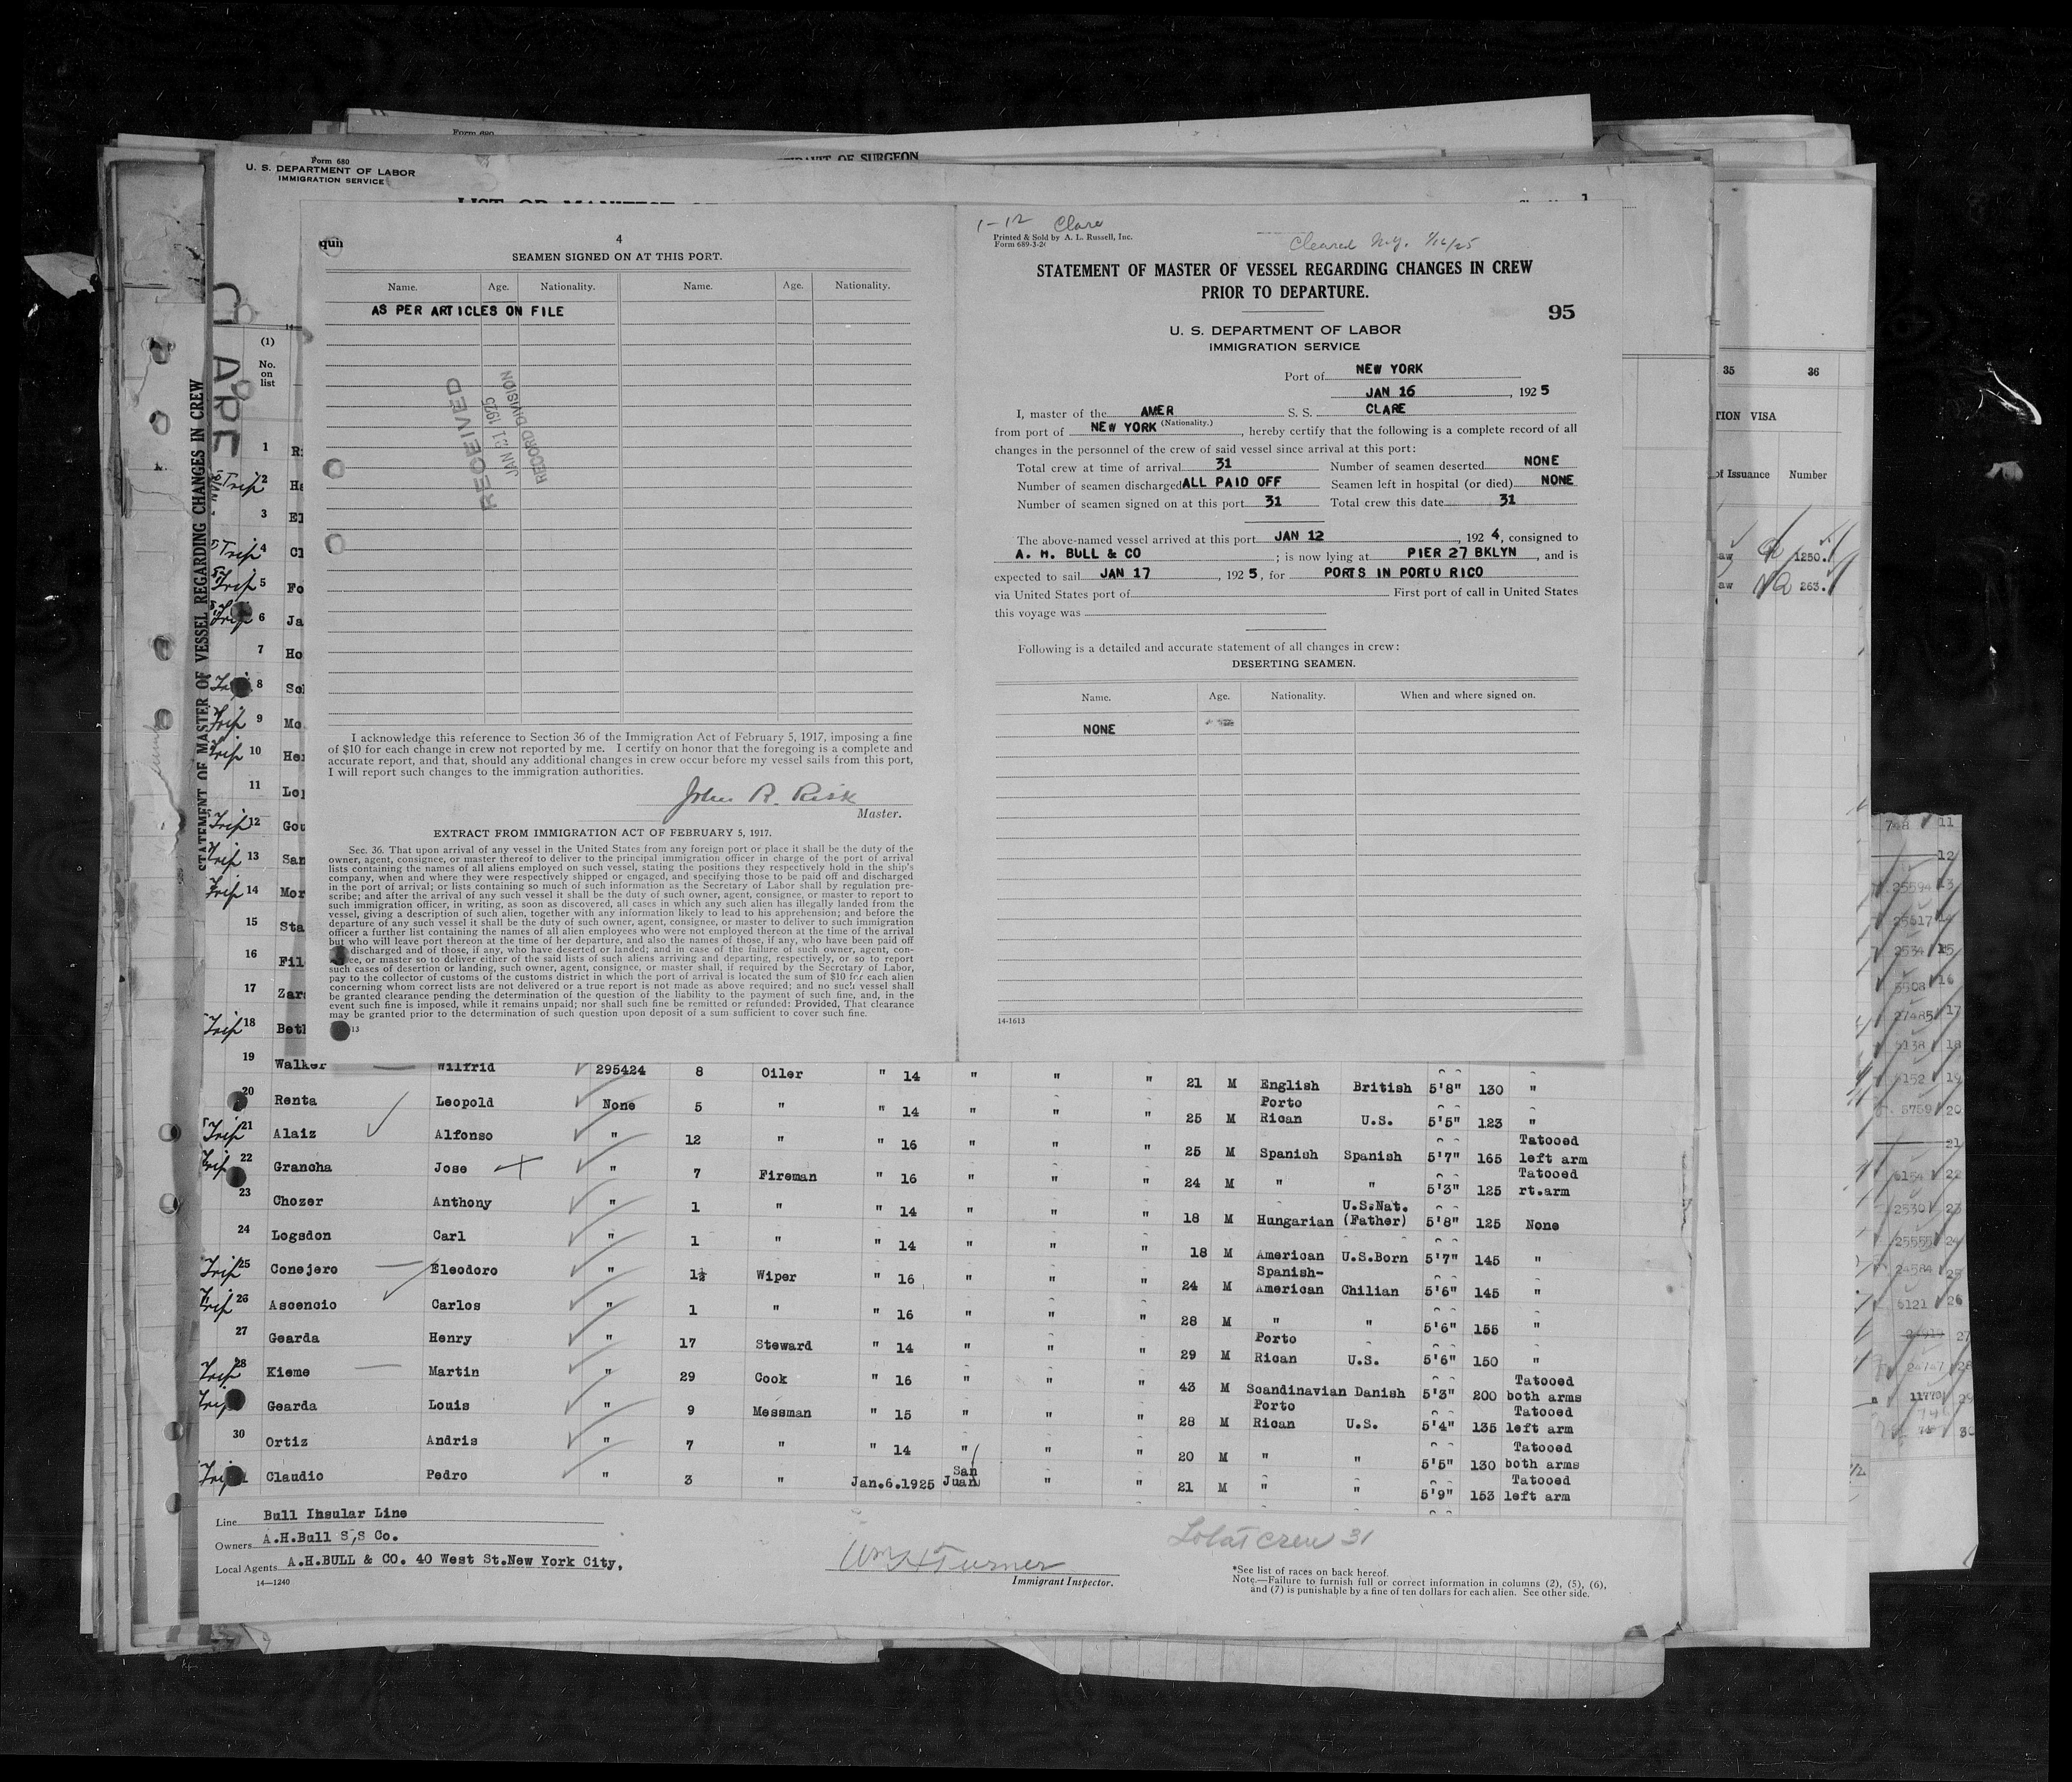 Form 680
U. S. DEPARTMENT OF LABOR
IMMIGRATION SERVICE
CLARE
STATEMENT OF MASTER OF VESSEL REGARDING CHANGES IN CREW
(1)
No.
on
list
4
SEAMEN SIGNED ON AT THIS PORT.
Name. Age. Nationality. Name. Age. Nationality.
AS PER ARTICLES ON FILE
RECEIVED
JAN 21 1925
RECORD DIVISION
I acknowledge this reference to Section 36 of the Immigration Act of February 5, 1917, imposing a fine
of $10 for each change in crew not reported by me. I certify on honor that the foregoing is a complete and
accurate report, and that, should any additional changes in crew occur before my vessel sails from this port,
I will report such changes to the immigration authorities.
John R. Risk
Master.
EXTRACT FROM IMMIGRATION ACT OF FEBRUARY 5, 1917.
Sec. 36. That upon arrival of any vessel in the United States from any foreign port or place it shall be the duty of the
owner, agent, consignee, or master thereof to deliver to the principal immigration officer in charge of the port of arrival
lists containing the names of all aliens employed on such vessel, stating the positions they respectively hold in the ship's
company, when and where they were respectively shipped or engaged, and specifying those to be paid off and discharged
in the port of arrival; or lists containing so much of such information as the Secretary of Labor shall by regulation pre-
scribe; and after the arrival of any such vessel it shall be the duty of such owner, agent, consignee, or master to report to
such immigration officer, in writing, as soon as discovered, all cases in which any such alien has illegally landed from the
vessel, giving a description of such alien, together with any information likely to lead to his apprehension; and before the
departure of any such vessel it shall be the duty of such owner, agent, consignee, or master to deliver to such immigration
officer a further list containing the names of all alien employees who were not employed thereon at the time of the arrival
but who will leave port thereon at the time of her departure, and also the names of those, if any, who have been paid off
discharged and of those, if any, who have deserted or landed; and in case of the failure of such owner, agent, con-
ee, or master so to deliver either of the said lists of such aliens arriving and departing, respectively, or so to report
such cases of desertion or landing, such owner, agent, consignee, or master shall, if required by the Secretary of Labor,
pay to the collector of customs of the customs district in which the port of arrival is located the sum of $10 for each alien
concerning whom correct lists are not delivered or a true report is not made as above required; and no such vessel shall
be granted clearance pending the determination of the question of the liability to the payment of such fine, and, in the
event such fine is imposed, while it remains unpaid; nor shall such fine be remitted or refunded: Provided, That clearance
may be granted prior to the determination of such question upon deposit of a sum sufficient to cover such fine.
13
1-12 Clare
Printed & Sold by A. L. Russell, Inc.
Form 689-3-2
Cleared N.Y. 1/16/25
STATEMENT OF MASTER OF VESSEL REGARDING CHANGES IN CREW
PRIOR TO DEPARTURE.
95
U. S. DEPARTMENT OF LABOR
IMMIGRATION SERVICE
Port of NEW YORK
JAN 16, 1925
I, master of the AMER S. S. CLARE
(Nationality.)
from port of NEW YORK, hereby certify that the following is a complete record of all
changes in the personnel of the crew of said vessel since arrival at this port:
Total crew at time of arrival 31 Number of seamen deserted NONE
Number of seamen discharged ALL PAID OFF Seamen left in hospital (or died) NONE
Number of seamen signed on at this port 31 Total crew this date 31
The above-named vessel arrived at this port JAN 12, 1924, consigned to
A. H. BULL & CO; is now lying at PIER 27 BKLYN, and is
expected to sail JAN 17, 1925, for PORTS IN PORTU RICO
via United States port of First port of call in United States
this voyage was
Following is a detailed and accurate statement of all changes in crew:
DESERTING SEAMEN.
Name. Age. Nationality. When and where signed on.
NONE
14-1613
35 36
TION VISA
of Issuance Number
aw 1250.
aw 263.
1 Ri
Trip 2 Ha
3 El
Trip 4 Cl
Trip 5 Fo
Trip 6 Ja
7 Ho
8 Sc
Trip 9 Mo
Trip 10 He
11 Lo
Trip 12 Gou
Trip 13 San
Trip 14 Mor
15 Sta
16 Fil
17 Zar
Trip 18 Bet
19 Walker Wilfrid 295424 8 Oiler " 14 " " " 21 M English British 5'8" 130 "
20 Renta Leopold None 5 " " 14 " " " 25 M Porto Rican U.S. 5'5" 123 "
Trip 21 Alaiz Alfonso " 12 " " 16 " " " 25 M Spanish Spanish 5'7" 165 Tatooed left arm
Trip 22 Grancha Jose " 7 Fireman " 16 " " " 24 M " " 5'3" 125 Tatooed rt.arm
23 Chozer Anthony " 1 " " 14 " " " 18 M Hungarian U.S.Nat. (Father) 5'8" 125 None
24 Logsdon Carl " 1 " " 14 " " " 18 M American U.S.Born 5'7" 145 "
Trip 25 Conejero Eleodoro " 1½ Wiper " 16 " " " 24 M Spanish-American Chilian 5'6" 145 "
Trip 26 Ascencio Carlos " 1 " " 16 " " " 28 M " " 5'6" 155 "
27 Gearda Henry " 17 Steward " 14 " " " 29 M Porto Rican U.S. 5'6" 150 "
Trip 28 Kieme Martin " 29 Cook " 16 " " " 43 M Scandinavian Danish 5'3" 200 Tatooed both arms
Trip Gearda Louis " 9 Messman " 15 " " " 28 M Porto Rican U.S. 5'4" 135 Tatooed left arm
30 Ortiz Andris " 7 " " 14 " " " 20 M " " 5'5" 130 Tatooed both arms
Trip Claudio Pedro " 3 " Jan.6.1925 San Juan " " 21 M " " 5'9" 153 Tatooed left arm
Line Bull Insular Line
Owners A.H.Bull S,S Co.
Local Agents A.H.BULL & CO. 40 West St.New York City,
14—1240
Wm H Turner
Immigrant Inspector.
Total crew 31
*See list of races on back hereof.
Note.—Failure to furnish full or correct information in columns (2), (5), (6),
and (7) is punishable by a fine of ten dollars for each alien. See other side.